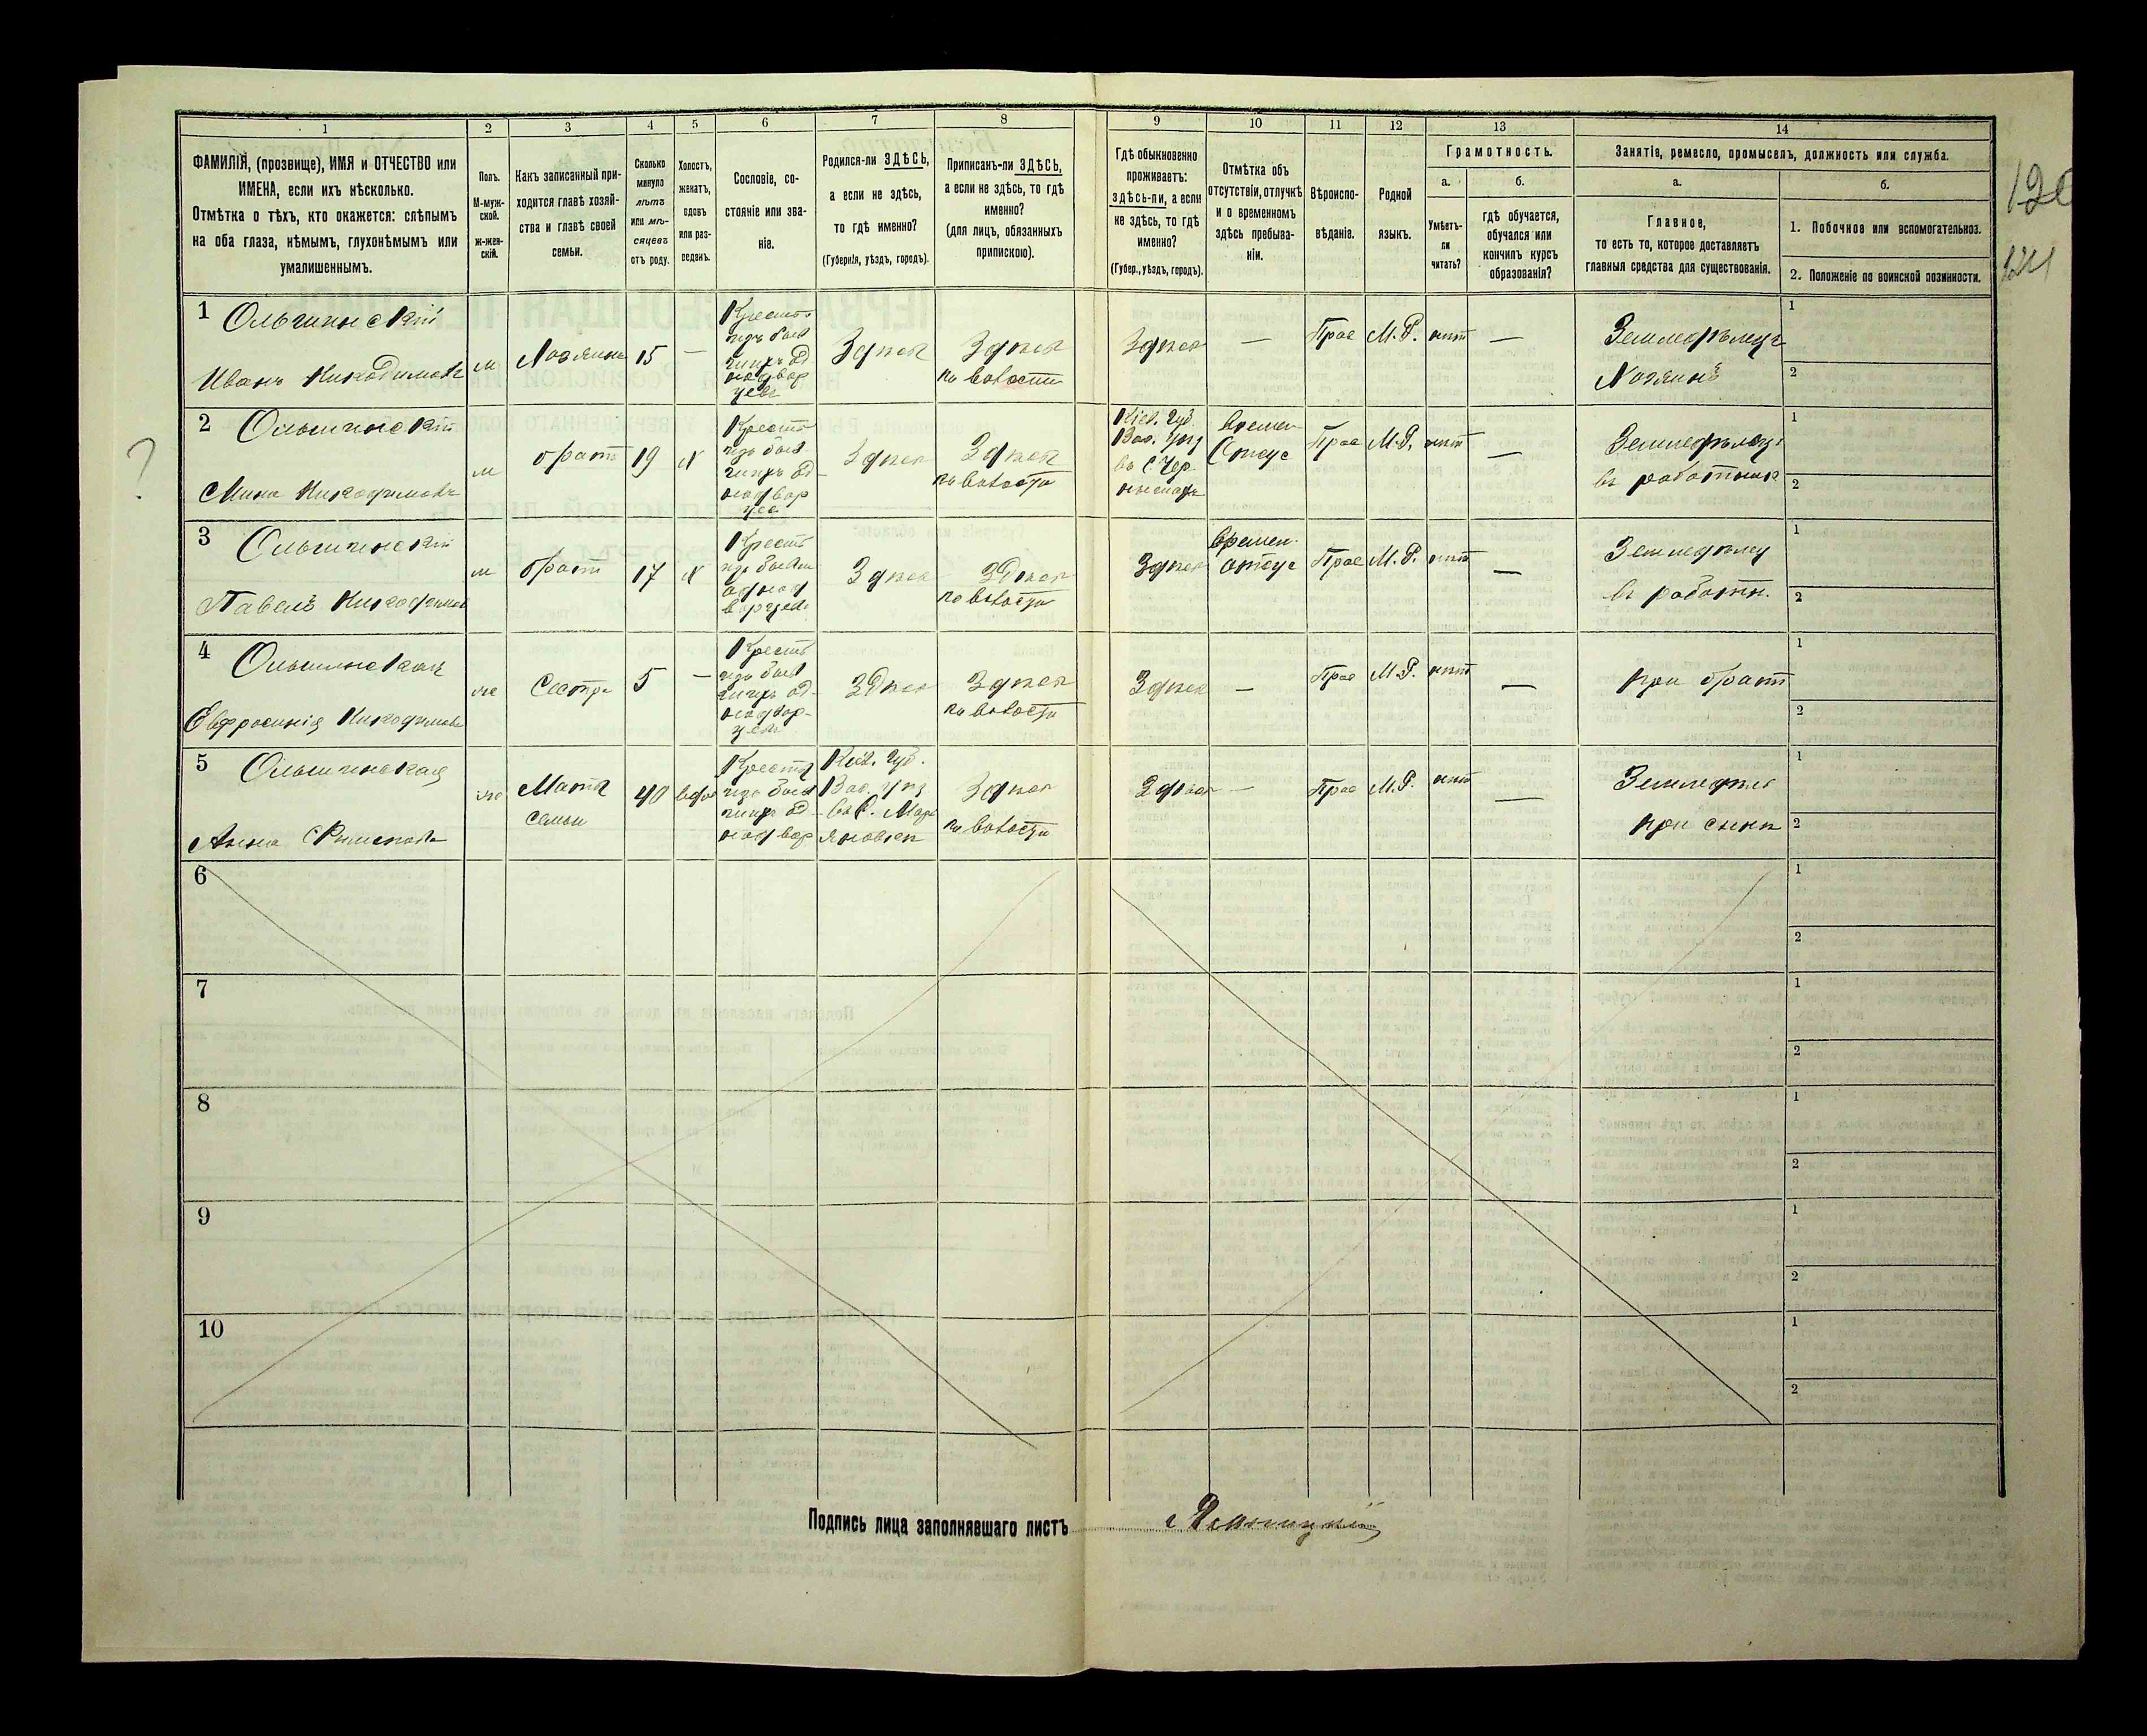 1 2 3 4 5 6 7 8 9 10 11 12 13 14
ФАМИЛІЯ, (прозвище), ИМЯ и ОТЧЕСТВО или
ИМЕНА, если ихъ нѣсколько.
Отмѣтка о тѣхъ, кто окажется: слѣпымъ
на оба глаза, нѣмымъ, глухонѣмымъ или
умалишеннымъ.
Полъ.
М-муж-
ской.
ж-жен-
скій.
Какъ записанный при-
ходится главѣ хозяй-
ства и главѣ своей
семьи.
Сколько
минуло
лѣтъ
или мѣ-
сяцевъ
отъ роду.
Холостъ,
женатъ,
вдовъ
или раз-
веденъ.
Сословіе, со-
стояніе или зва-
ніе.
Родился-ли ЗДѢСЬ,
а если не здѣсь,
то гдѣ именно?
(Губернія, уѣздъ, городъ).
Приписанъ-ли ЗДѢСЬ,
а если не здѣсь, то гдѣ
именно?
(для лицъ, обязанныхъ
припискою).
Гдѣ обыкновенно
проживаетъ:
здѣсь-ли, а если
не здѣсь, то гдѣ
именно?
(Губер., уѣздъ, городъ).
Отмѣтка объ
отсутствіи, отлучкѣ
и о временномъ
здѣсь пребыва-
ніи.
Вѣроиспо-
вѣданіе.
Родной
языкъ.
Грамотность.
а.
Умѣетъ-
ли
читать?
б.
гдѣ обучается,
обучался или
кончилъ курсъ
образованія?
Занятіе, ремесло, промыселъ, должность или служба.
а.
Главное,
то есть то, которое доставляетъ
главныя средства для существованія.
б.
1. Побочное или вспомогательное.
2. Положеніе по воинской повинности.
1 Ольшинскій
Иванъ Никодимовъ
м
Хозяинъ
15
—
Крестья
изъ быв
одн
двор
Здѣсь
Здѣсь
по волости
Здѣсь
—
Прав
М.Р.
нѣт
—
Земледѣлецъ
Хозяинъ
1
2
2 Ольшинскій
Мина Никодимовъ
м
брат
19
х
Крестья
изъ быв
Здѣсь
Здѣсь
по волости
Кіев. Губ.
Вас. Уѣз
въ С. Чер
Времен
Отсус
Прав
М.Р.
нѣт
—
Земледѣлецъ
въ работник
1
2
3 Ольшинскій
Павелъ Никодимов
м
брат
17
х
Крестья
изъ бывш
однод
ворцев
Здѣсь
Здѣсь
по волости
Здѣсь
Времен.
отсус
Прав
М.Р.
нѣт
—
Земледѣлец
въ работн.
1
2
4 Ольшинская
Евфросинія Никодимова
же
Сестра
5
—
Крестья
изъ быв
Здѣсь
Здѣсь
по волости
Здѣсь
—
Прав
М.Р.
нѣт
—
при брат
1
2
5 Ольшинская
Анна
же
Мать
семьи
40
вдов
Крестья
изъ быв
Кіев. Губ.
Вас. Уѣз
въ С. Мар
яновки
Здѣсь
по волости
Здѣсь
—
Прав
М.Р.
нѣт
—
Земледѣл
при сынѣ
1
2
6
1
2
7
1
2
8
1
2
9
1
2
10
1
2
Подпись лица заполнявшаго листъ